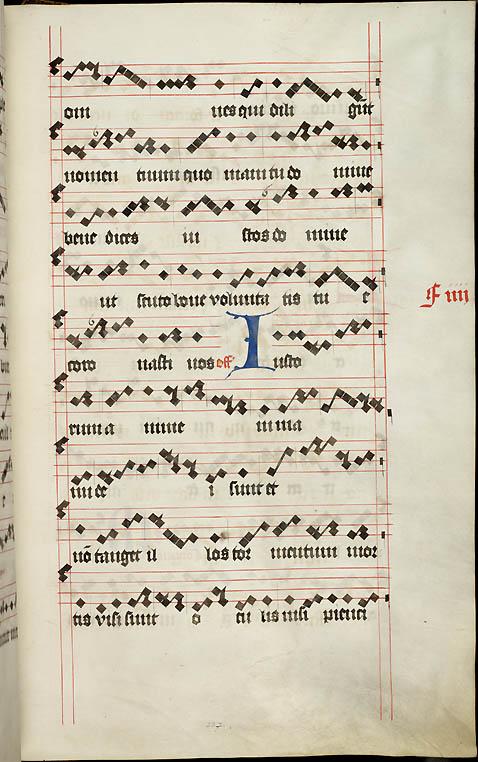 om nes qui dili gūt
nomen tuum quo niam tu do mine
bene dices iu stos do mine
ut scuto bone volunta tis tu e
coro nasti nos off Iusto
rum a nime in ma
nu de i sunt et
nō tanget il los tor mentum mor
tis visi sunt o cu lis insi pienci
F iiii